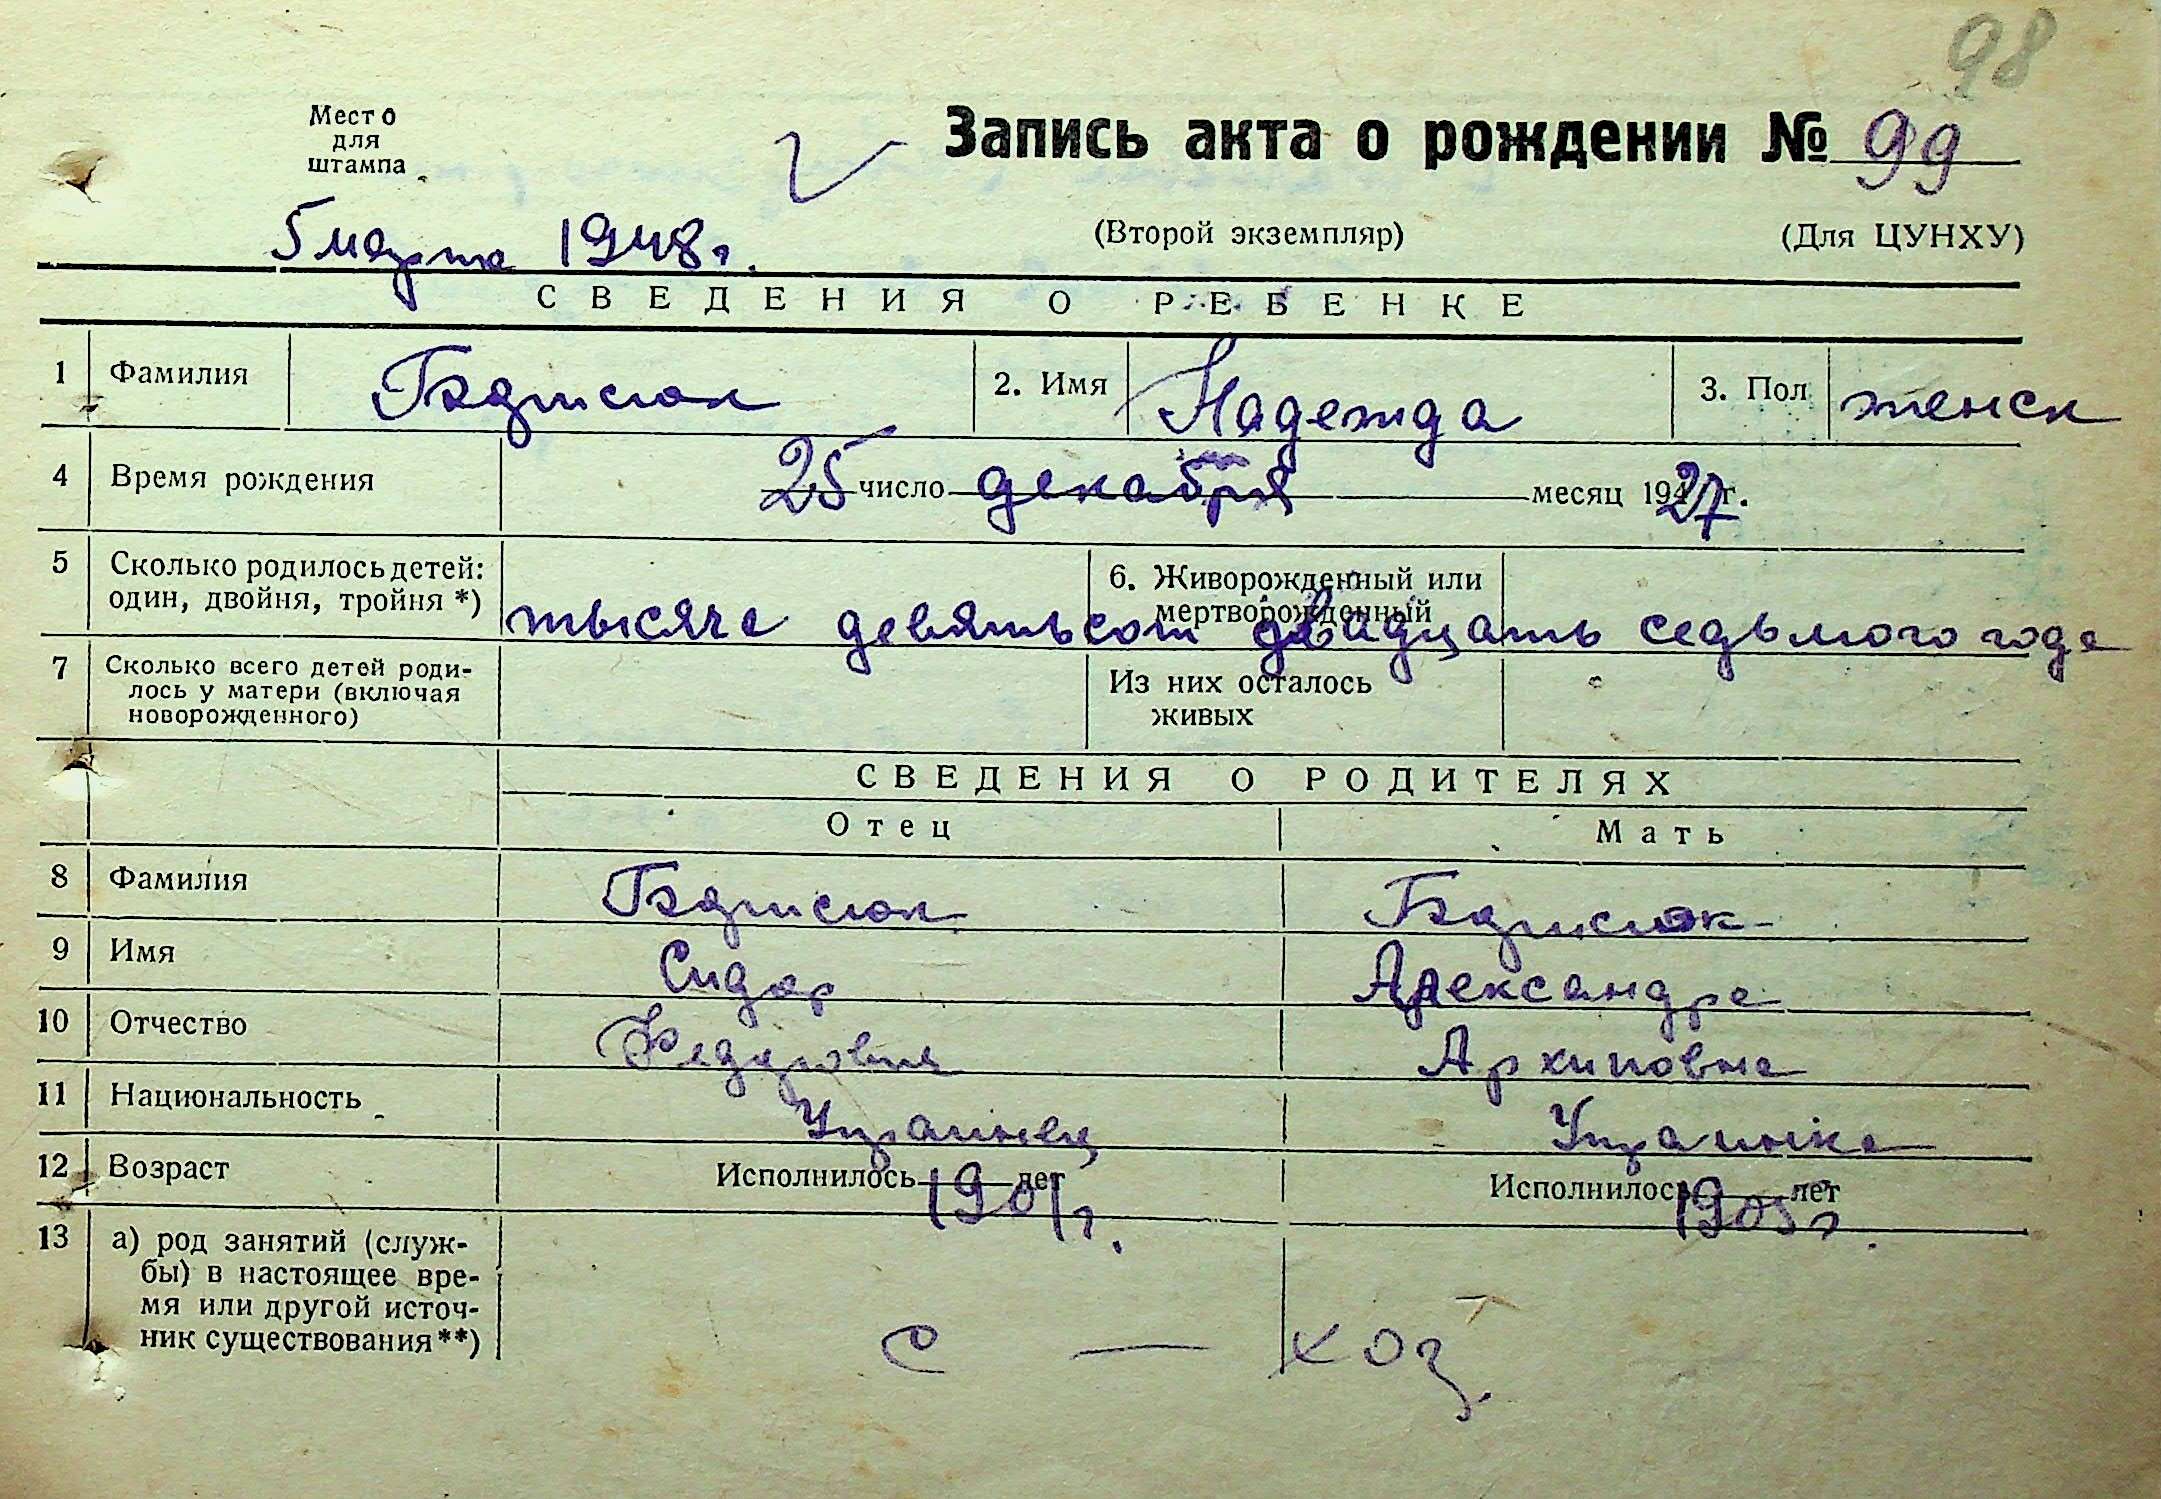 98
Место
для
штампа
Запись акта о рождении № 99
5 марта 1948 г.
(Второй экземпляр) (Для ЦУНХУ)
СВЕДЕНИЯ О РЕБЕНКЕ
1 Фамилия 2. Имя Надежда 3. Пол женск
4 Время рождения 25 число декабря месяц 1927 г.
5 Сколько родилось детей: 6. Живорожденный или
один, двойня, тройня *) мертворожденный
тысяча девятьсот двадцать седьмого года
7 Сколько всего детей роди- Из них осталось
лось у матери (включая живых
новорожденного)
СВЕДЕНИЯ О РОДИТЕЛЯХ
Отец Мать
8 Фамилия
9 Имя Сидор Александра
10 Отчество Федорович Архиповна
11 Национальность Украинец Украинка
12 Возраст Исполнилось 1901 г. лет Исполнилось 1905 г. лет
13 а) род занятий (служ-
бы) в настоящее вре-
мя или другой источ-
ник существования**)
с — хоз.